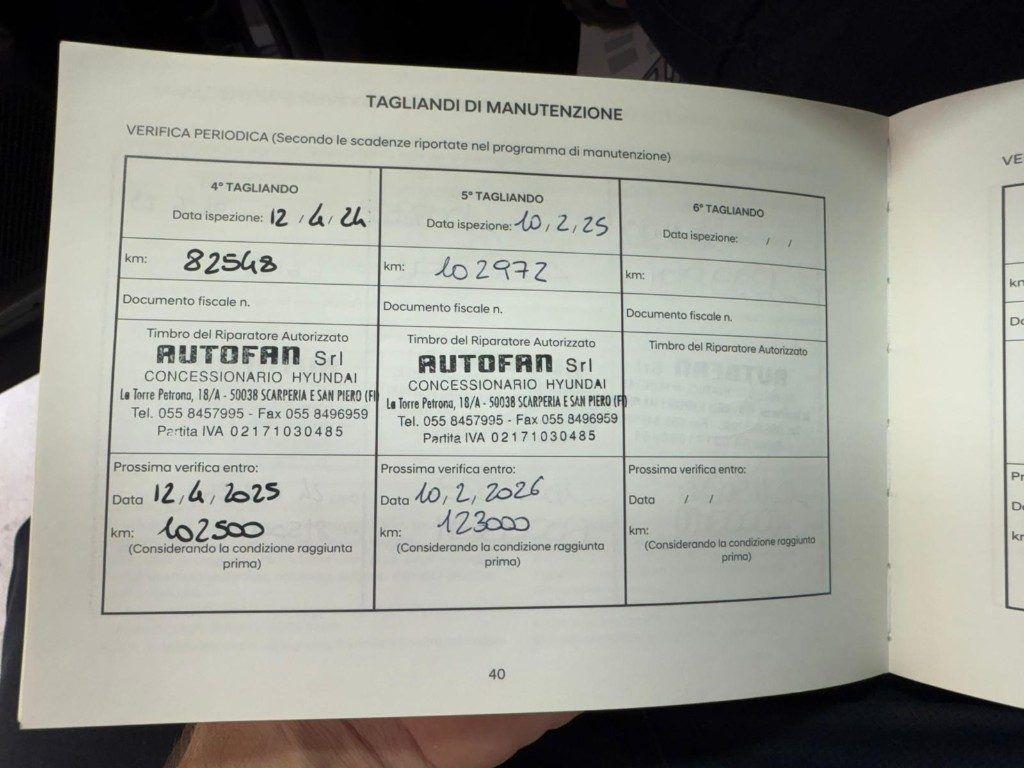 TAGLIANDI DI MANUTENZIONE
VERIFICA PERIODICA (Secondo le scadenze riportate nel programma di manutenzione)
4° TAGLIANDO
Data ispezione: 12 / 4 / 24
km: 82548
Documento fiscale n.
Timbro del Riparatore Autorizzato
AUTOFAN Srl
CONCESSIONARIO HYUNDAI
La Torre Petrona, 18/A - 50038 SCARPERIA E SAN PIERO (FI)
Tel. 055 8457995 - Fax 055 8496959
Partita IVA 02171030485
Prossima verifica entro:
Data 12, 4, 2025
km: 102500
(Considerando la condizione raggiunta
prima)
5° TAGLIANDO
Data ispezione: 10, 2, 25
km: 102972
Documento fiscale n.
Timbro del Riparatore Autorizzato
AUTOFAN Srl
CONCESSIONARIO HYUNDAI
La Torre Petrona, 18/A - 50038 SCARPERIA E SAN PIERO (FI)
Tel. 055 8457995 - Fax 055 8496959
Partita IVA 02171030485
Prossima verifica entro:
Data 10, 2, 2026
km: 123000
(Considerando la condizione raggiunta
prima)
6° TAGLIANDO
Data ispezione: / /
km:
Documento fiscale n.
Timbro del Riparatore Autorizzato
Prossima verifica entro:
Data / /
km:
(Considerando la condizione raggiunta
prima)
40
VE
km
Do
Pr
Da
km